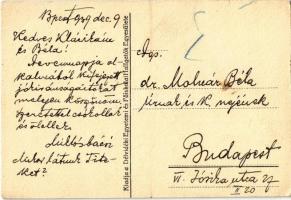 Bpest 939 dec. 9
Kedves Klárikám
és Béla!
Nevemnapja al-
kalmából kifejezett
jókívánságaitokat
melegen köszönöm
szeretettel csókollak
és ölellek
Miklósbácsi
Mikor látunk Tite-
ket?
Kiadja a Délvidéki Egyetemi és Főiskolai Hallgatók Egyesülete
dr. Molnár Béla
úrnak és K. nejének
Budapest
VI. Jósika utca 27
II 20